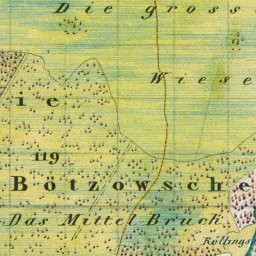 Die gross
Wiese
ie
119
Bötzowsche
Das Mittel Bruck